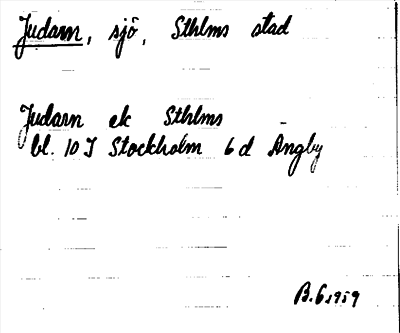 Judarn, sjö, Sthlms stad
Judarn ek Sthlms
bl. 10 I Stockholm 6 d Ängby
B. 6 1959